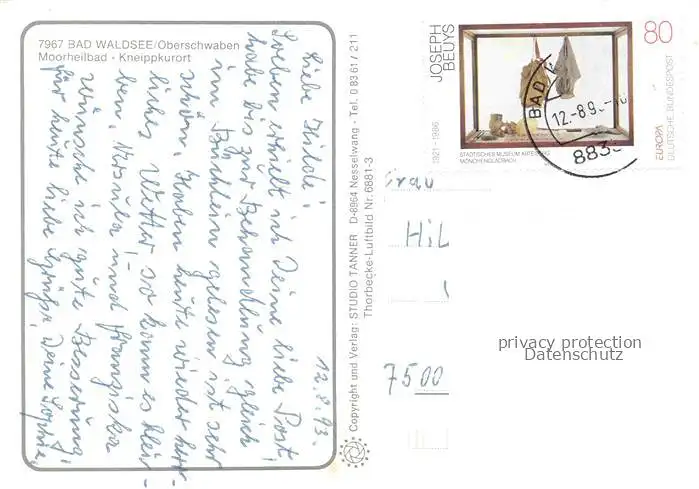 7967 BAD WALDSEE/Oberschwaben
Moorheilbad · Kneippkurort
12.8.93.
Liebe Hilde!
Soeben erhielt ich Deine liebe Post,
habe bis zur Behandlung gleich
im Büchlein gelesen ist sehr
schön. Haben heute wieder herr-
liches Wetter, so kann es blei-
ben. Monika und Franziska
wünsche ich gute Besserung
für heute liebe Grüße, Deine Sophie,
Copyright und Verlag: STUDIO TANNER D-8964 Nesselwang · Tel. 0 83 61 / 211
Thorbecke-Luftbild Nr. 6881-3
JOSEPH
BEUYS
1921-1986
80
STÄDTISCHES MUSEUM ABTEIBERG
MÖNCHENGLADBACH
EUROPA
DEUTSCHE BUNDESPOST
BAD
12.-8.9
883
Frau
Hil
7500
privacy protection
Datenschutz